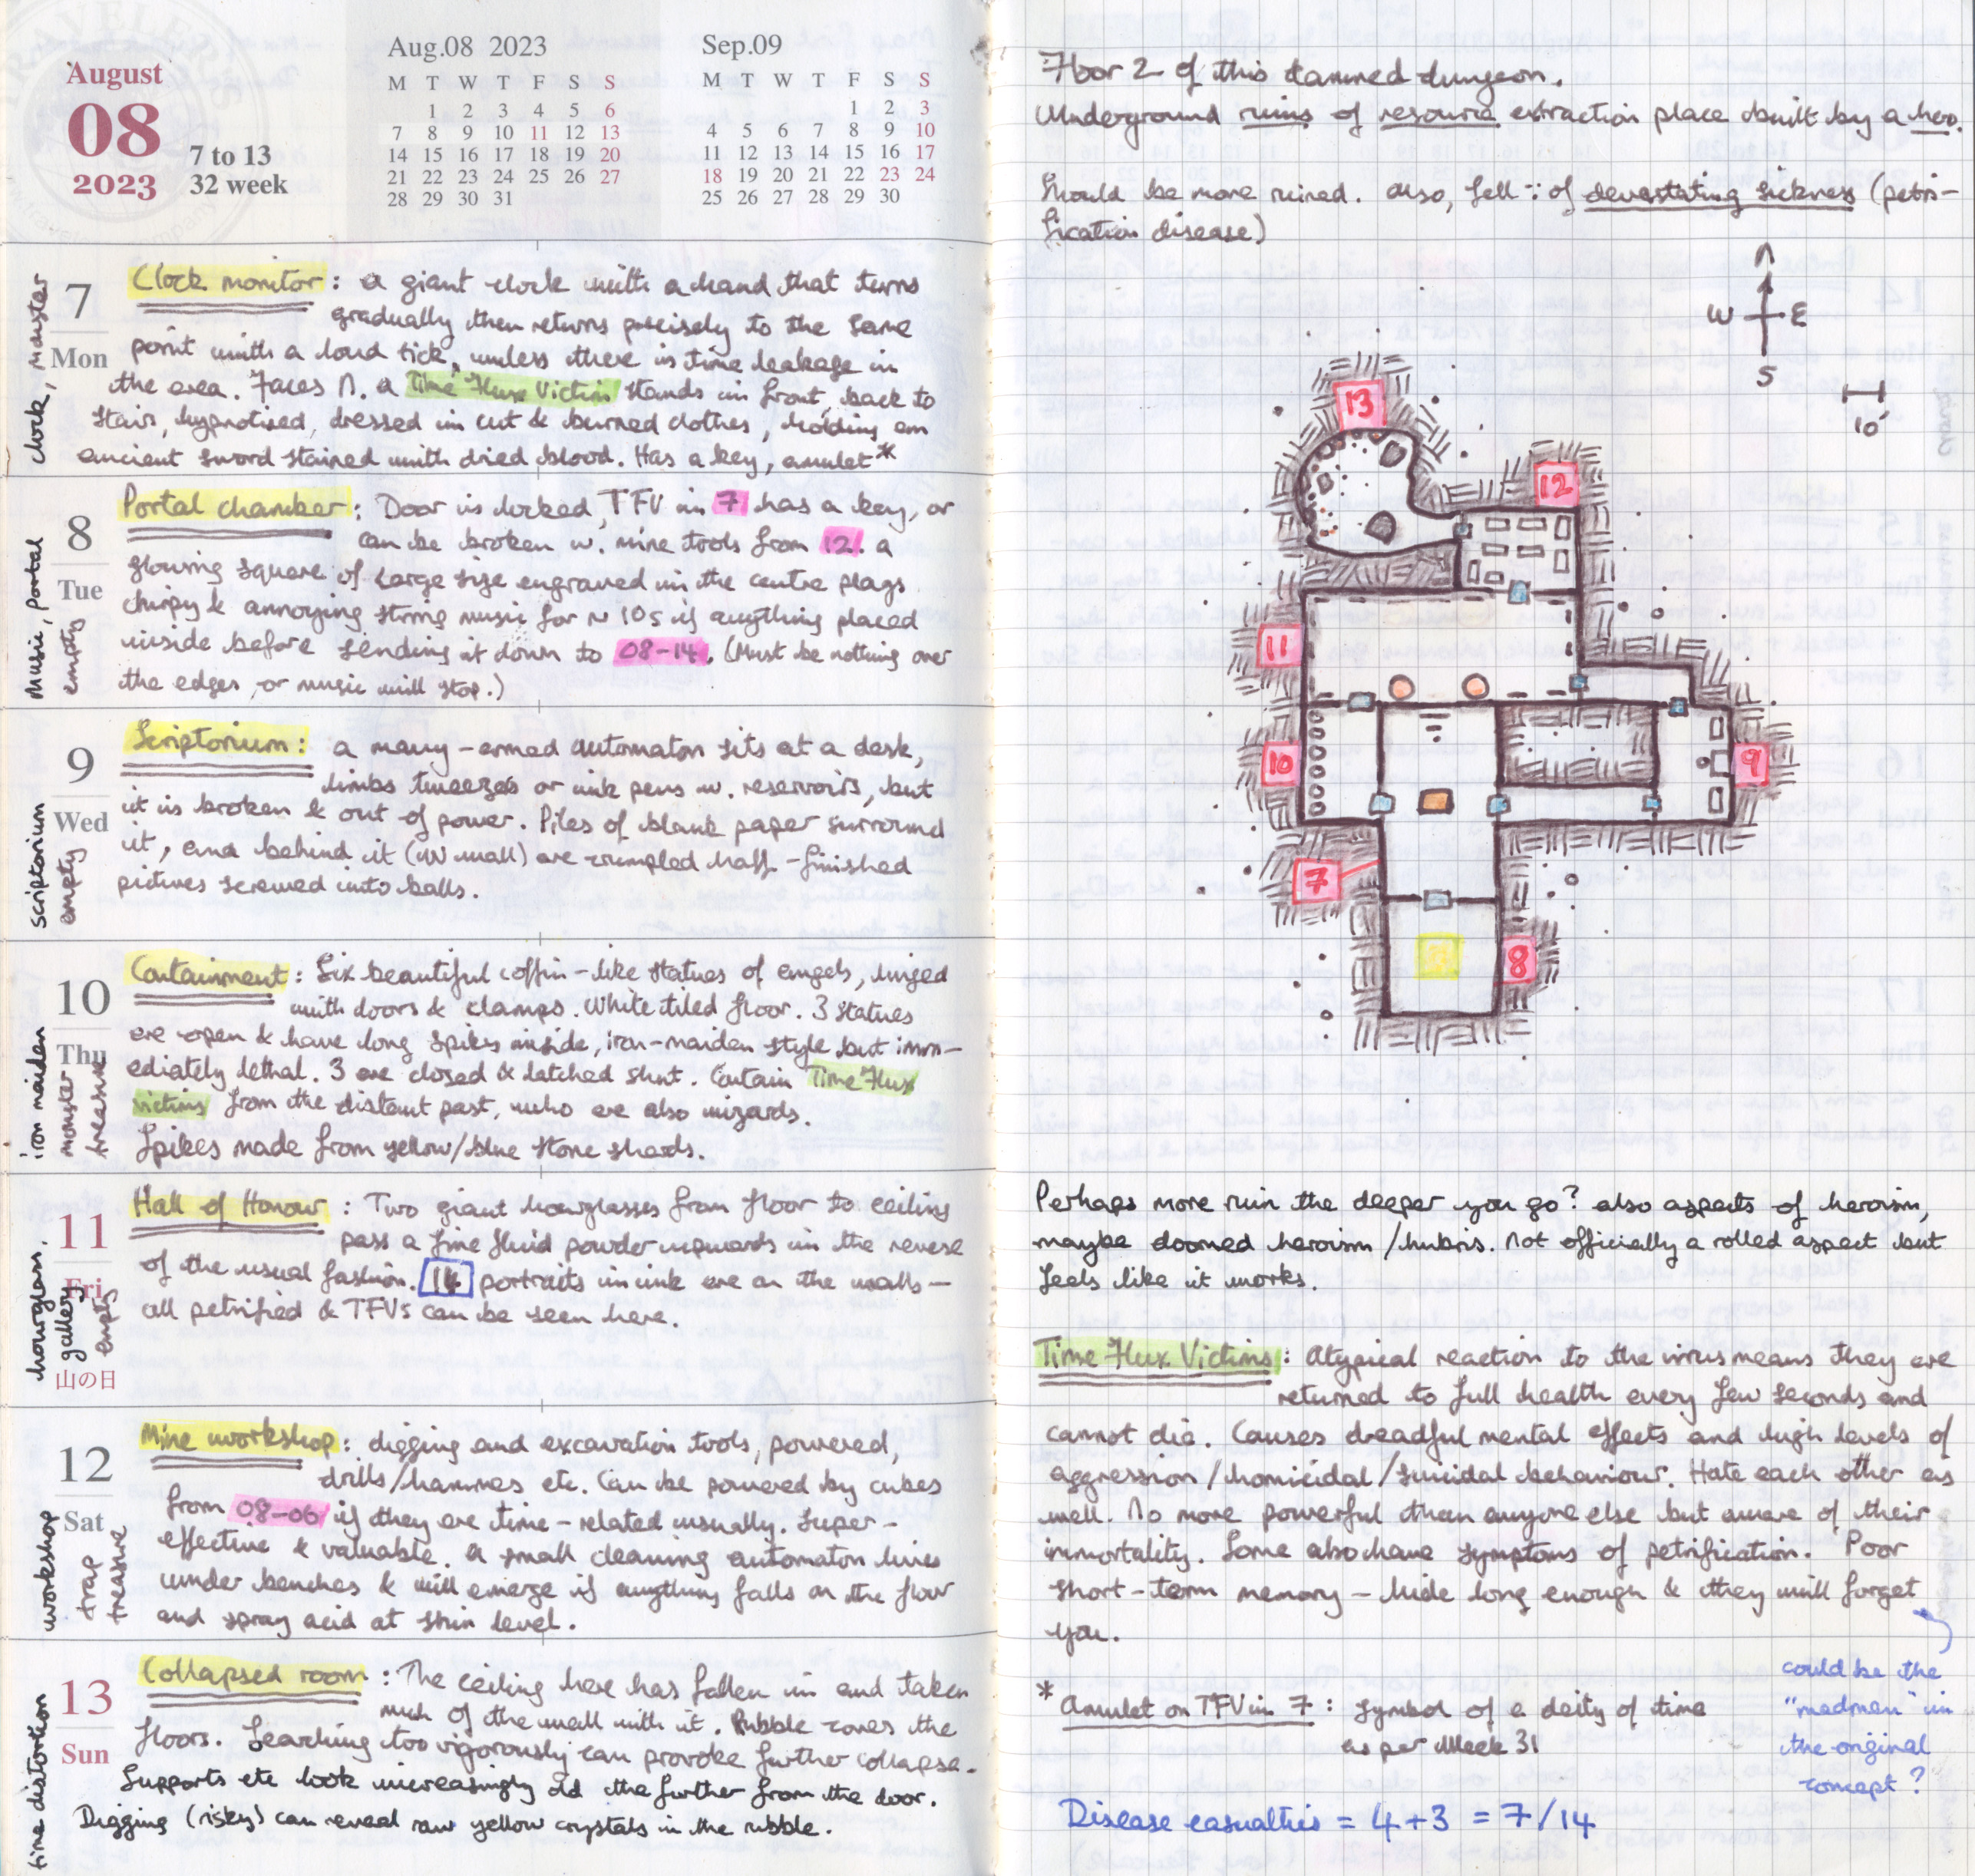 August
08
2023
7 to 13
32 week
Aug.08 2023
M T W T F S S
1 2 3 4 5 6
7 8 9 10 11 12 13
14 15 16 17 18 19 20
21 22 23 24 25 26 27
28 29 30 31
Sep.09
M T W T F S S
1 2 3
4 5 6 7 8 9 10
11 12 13 14 15 16 17
18 19 20 21 22 23 24
25 26 27 28 29 30
7
Mon
clock, monster
Clock monitor: a giant clock with a hand that turns
gradually then returns precisely to the same
point with a loud tick, unless there is time leakage in
the area. Faces N. A Time Flux Victim stands in front, back to
stairs, hypnotised, dressed in cut & burned clothes, holding an
ancient sword stained with dried blood. Has a key, amulet*
8
Tue
music, portal
empty
Portal chamber: Door is locked, TFV in 7 has a key, or
can be broken w. mine tools from 12. A
glowing square of large size engraved in the centre plays
chirpy & annoying string music for ~10s if anything placed
inside before sending it down to 08-14. (Must be nothing over
the edges, or music will stop.)
9
Wed
scriptorium
empty
Scriptorium: a many-armed automaton sits at a desk,
limbs tweezers or ink pens w. reservoirs, but
it is broken & out of power. Piles of blank paper surround
it, and behind it (NW wall) are crumpled half-finished
pictures screwed into balls.
10
Thu
iron maiden
monster
treasure
Containment: Six beautiful coffin-like statues of angels, hinged
with doors & clamps. White tiled floor. 3 statues
are open & have long spikes inside, iron-maiden style but imm-
ediately lethal. 3 are closed & latched shut. Contain Time Flux
victims from the distant past, who are also wizards.
Spikes made from yellow/blue stone shards.
11
Fri
山の日
hourglass,
gallery
empty
Hall of Honour: Two giant hourglasses from floor to ceiling
pass a fine fluid powder upwards in the reverse
of the usual fashion. 14 portraits in ink are on the walls -
all petrified & TFVs can be seen here.
12
Sat
workshop
trap
treasure
Mine workshop: digging and excavation tools, powered,
drills/hammers etc. Can be powered by cubes
from 08-06 if they are time-related usually. Super-
effective & valuable. A small cleaning automaton lives
under benches & will emerge if anything falls on the floor
and spray acid at shin level.
13
Sun
time distortion
Collapsed room: The ceiling here has fallen in and taken
much of the wall with it. Rubble cones the
floors. Searching too vigorously can provoke further collapse.
Supports etc look increasingly old the further from the door.
Digging (risky) can reveal raw yellow crystals in the rubble.
Floor 2 of this damned dungeon.
Underground ruins of resource extraction place built by a hero.
Should be more ruined. Also, fell ∵ of devastating sickness (petri-
fication disease)
W E
S
10'
13
12
11
10
9
7
8
Perhaps more ruin the deeper you go? Also aspects of heroism,
maybe doomed heroism/hubris. Not officially a rolled aspect but
feels like it works.
Time Flux Victims: Atypical reaction to the virus means they are
returned to full health every few seconds and
cannot die. Causes dreadful mental effects and high levels of
aggression/homicidal/suicidal behaviour. Hate each other as
well. No more powerful than anyone else but aware of their
immortality. Some also have symptoms of petrification. Poor
short-term memory - hide long enough & they will forget
you.
could be the
"madmen" in
the original
concept?
* Amulet on TFV in 7: Symbol of a deity of time
as per Week 31
Disease casualties = 4+3 = 7/14